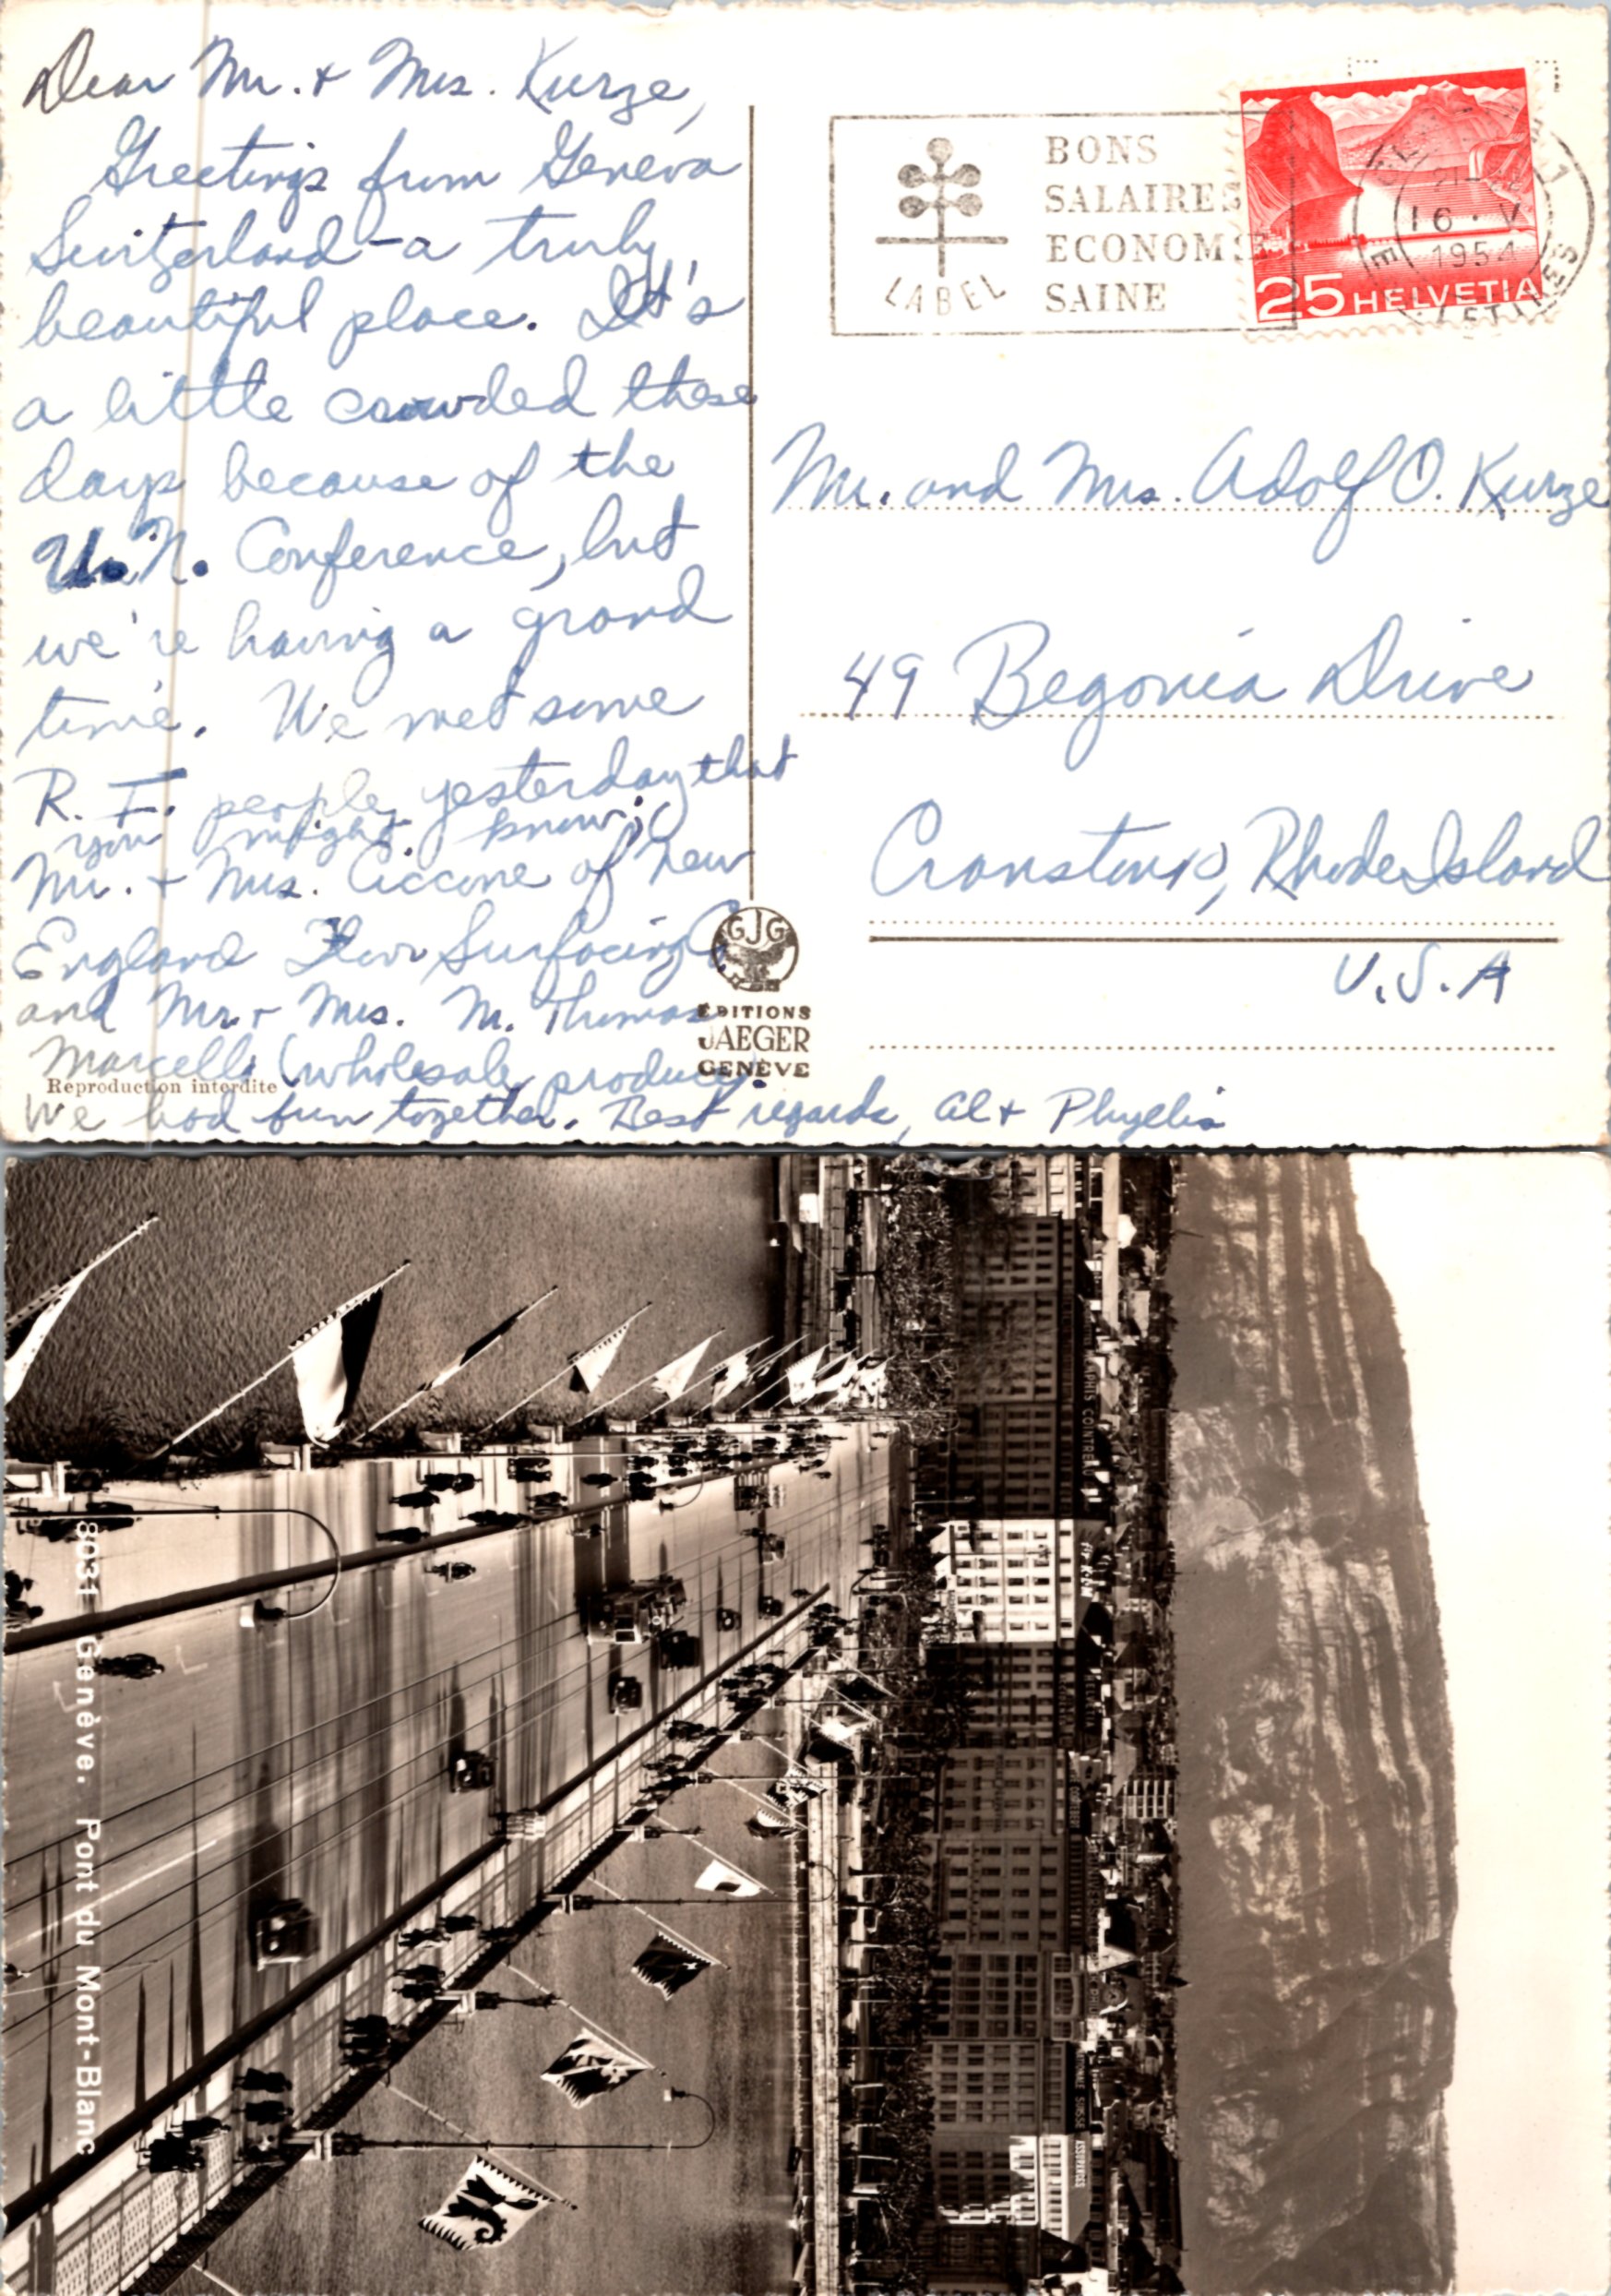 Dear Mr. + Mrs. Kurze,
Greetings from Geneva
Switzerland - a truly
beautiful place. It's
a little crowded these
days because of the
U.N. Conference, but
we're having a grand
time. We met some
R. I. people yesterday that
you might know;
Mr. + Mrs. Ciccone of New
England Floor Surfacing Co.
and Mr. + Mrs. M. Thomas
Marcello (wholesale produce).
We had fun together. Best regards, Al + Phyllis
Reproduction interdite
BONS
SALAIRES
ECONOMIE
SAINE
LABEL
16 · V
1954
25 HELVETIA
Mr. and Mrs. Adolf O. Kurze
49 Begonia Drive
Cranston, Rhode Island
U.S.A
GJG
EDITIONS
JAEGER
GENÈVE
8031 Genève. Pont du Mont-Blanc